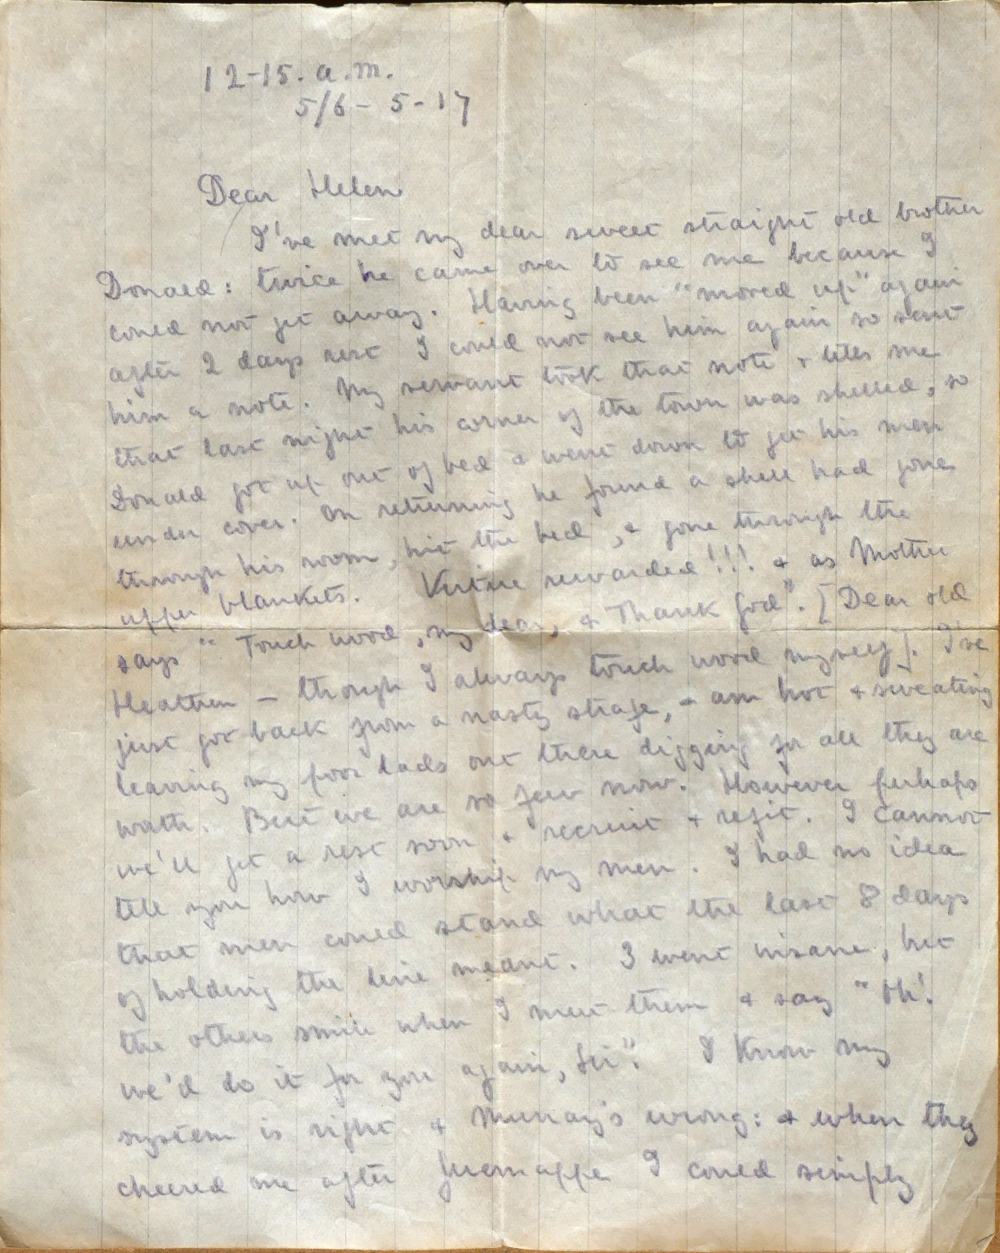 12-15. a.m.
5/6 - 5 - 17
Dear Helen
I've met my dear sweet straight old brother
Donald: twice he came over to see me because I
could not get away. Having been "moved up" again
after 2 days rest I could not see him again so sent
him a note. My servant took that note & tells me
that last night his corner of the town was shelled, so
Donald got up out of bed & went down to get his men
under cover. On returning he found a shell had gone
through his room, hit the bed, & gone through the
upper blankets. Virtue rewarded!!! & as Mother
says "Touch wood, my dear, & Thank God". [Dear old
Heathen – though I always touch wood myself]. I've
just got back from a nasty strafe, & am hot & sweating
leaving my poor lads out there digging for all they are
worth. But we are so few now. However perhaps
we'll get a rest soon & recruit & refit. I cannot
tell you how I worship my men. I had no idea
that men could stand what the last 8 days
of holding the line meant. 3 went insane, but
the others smile when I meet them & say "Oh!
we'd do it for you again, Sir". I know my
system is right & Murray's wrong: & when they
cheered me after Guemappe I could simply